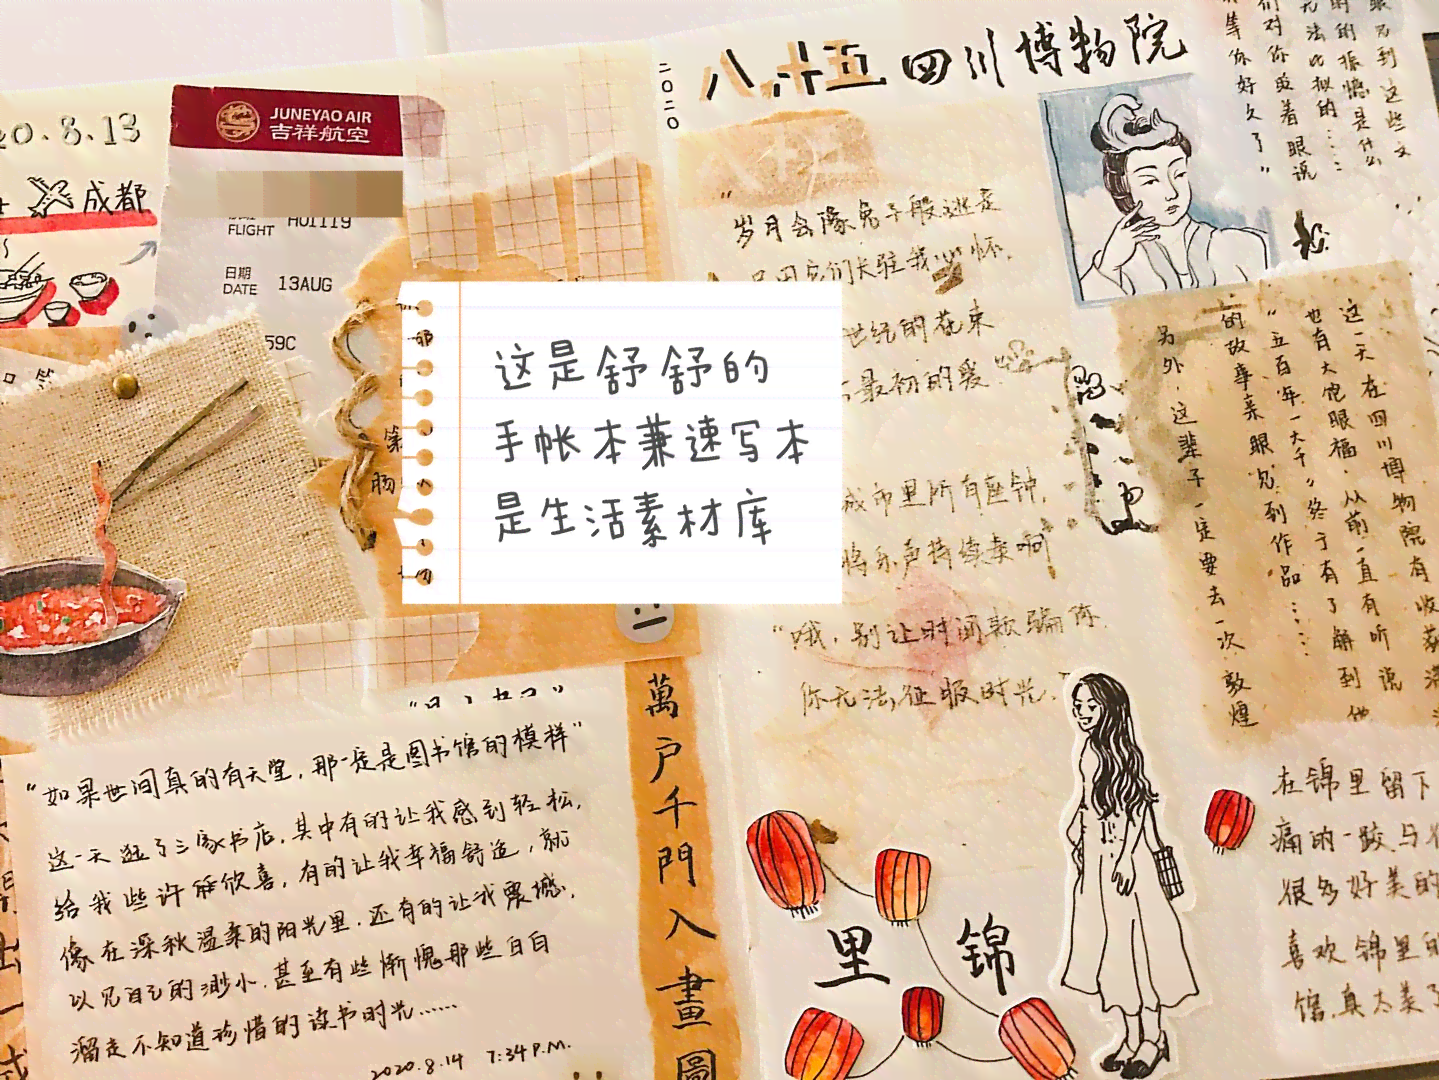 20.8.13
成都
JUNEYAO AIR
吉祥航空
FLIGHT HO1119
日期
DATE 13AUG
59C
这是舒舒的
手帐本兼速写本
是生活素材库
"如果世间真的有天堂，那一定是图书馆的模样"
这一天逛了三家书店，其中有的让我感到轻松，
给我些许的欣喜，有的让我幸福舒适，就
像在深秋温柔的阳光里，还有的让我震撼，
以见自己的渺小，甚至有些惭愧那些白白
溜走不知道珍惜的读书时光……
2020.8.14 7:34 P.M.
萬户千門入畫圖
2020
八.十五 四川博物院
"岁月会像兔子般逃走
世纪的花束
最初的爱
城市里所有座钟，
将乐声持续奏响
"哦，别让时间欺骗你
你无法征服时光."
这一天在四川博物院有收获满
也有大饱眼福，从前一直有听说他
"五百年一大千"，终于有了解到
的故事亲眼见到作品……
另外，这辈子一定要去一次敦煌
锦里
在锦里留下
痛的一跤，与
很多好美的
喜欢锦里的
馆，真太美了